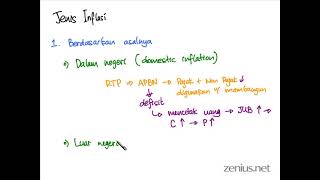 Jenis Inflasi
1. Berdasarkan asalnya
→ Dalam negeri (domestic inflation)
RTP → APBN → Pajak + Non Pajak ↓
↓ digunakan u/ membangun
defisit
↳ mencetak uang → JUB ↑ →
C ↑ → P ↑
→ Luar negeri
zenius.net